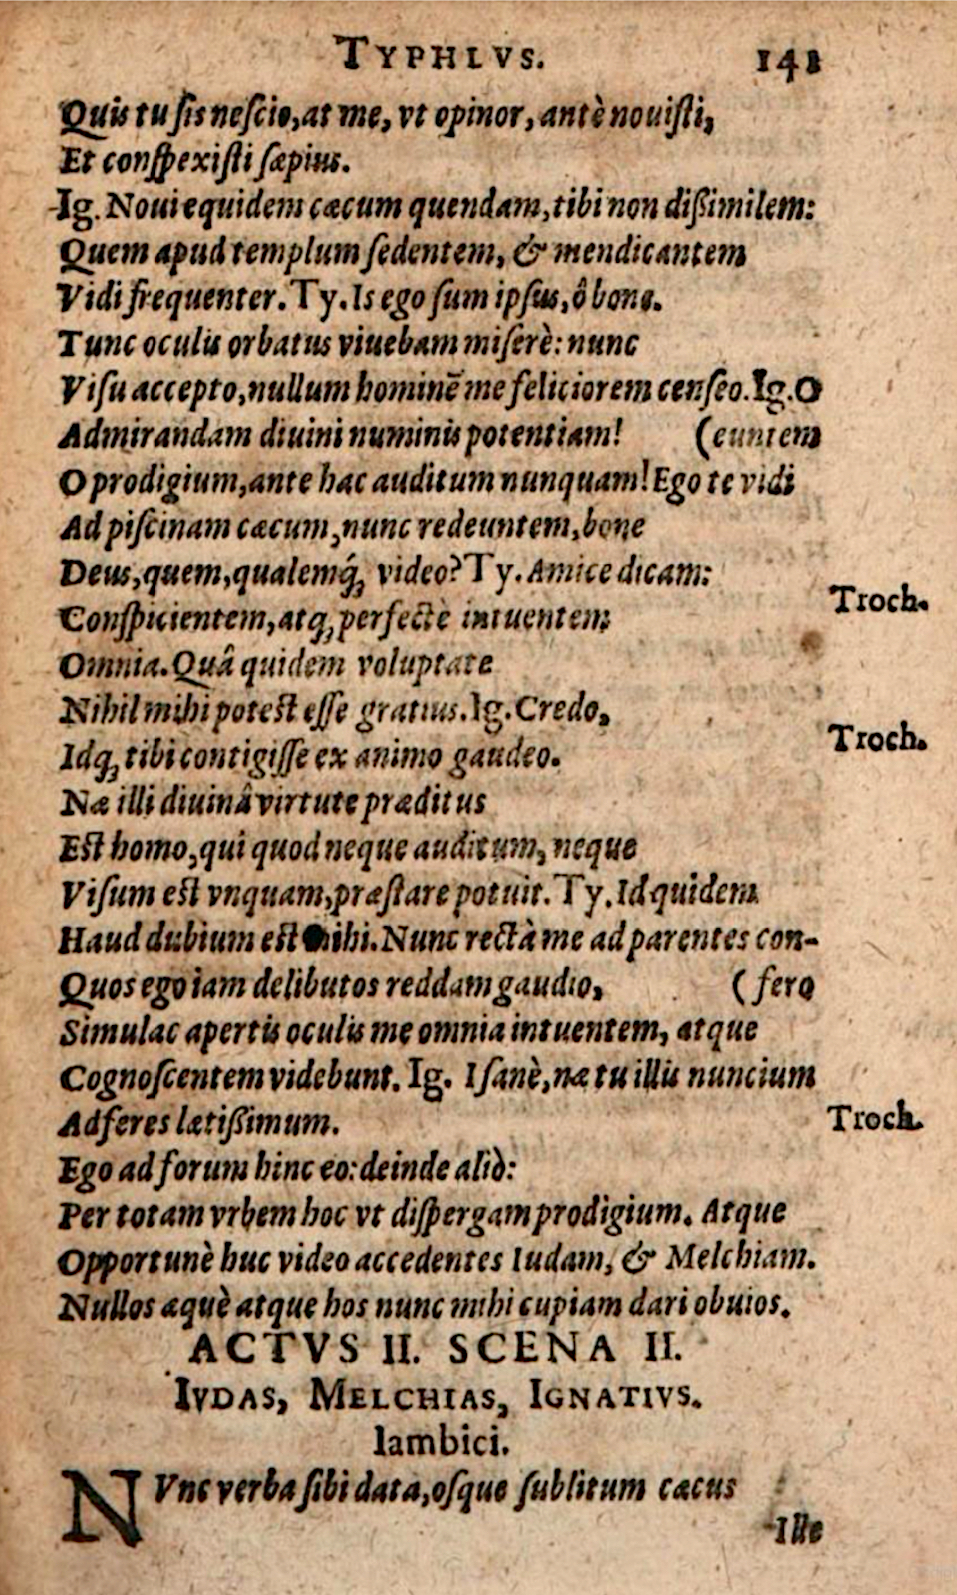 TYPHLVS. 141
Quis tu ſis neſcio, at me, vt opinor, antè nouiſti,
Et conſpexiſti ſæpius.
Ig. Noui equidem cæcum quendam, tibi non diſsimilem:
Quem apud templum ſedentem, & mendicantem
Vidi frequenter. Ty. Is ego ſum ipſus, ô bone.
Tunc oculis orbatus viuebam miſerè: nunc
Viſu accepto, nullum hominē me feliciorem cenſeo. Ig. O
Admirandam diuini numinis potentiam! (euntem
O prodigium, ante hac auditum nunquam! Ego te vidi
Ad piſcinam cæcum, nunc redeuntem, bone
Deus, quem, qualemq́; video? Ty. Amice dicam:
Conſpicientem, atq; perfectè intuentem Troch.
Omnia. Quâ quidem voluptate
Nihil mihi poteſt eſſe gratius. Ig. Credo,
Idq; tibi contigiſſe ex animo gaudeo. Troch.
Næ illi diuinâ virtute præditus
Eſt homo, qui quod neque auditum, neque
Viſum eſt vnquam, præſtare potuit. Ty. Id quidem
Haud dubium eſt mihi. Nunc rectà me ad parentes con-
Quos ego iam delibutos reddam gaudio, (fero
Simulac apertis oculis me omnia intuentem, atque
Cognoſcentem videbunt. Ig. I ſanè, næ tu illis nuncium
Adferes lætiſsimum. Troch.
Ego ad forum hinc eo: deinde aliò:
Per totam vrbem hoc vt diſpergam prodigium. Atque
Opportunè huc video accedentes Iudam, & Melchiam.
Nullos æquè atque hos nunc mihi cupiam dari obuios.
ACTVS II. SCENA II.
IVDAS, MELCHIAS, IGNATIVS.
Iambici.
NVnc verba ſibi data, oſque ſublitum cæcus
Ille